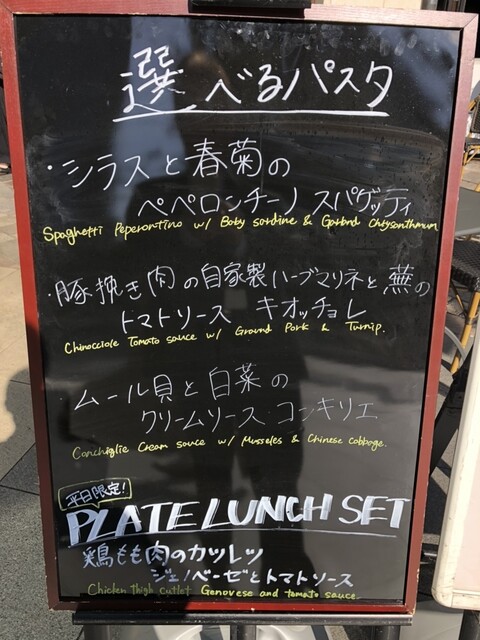 選べるパスタ
・シラスと春菊の
ペペロンチーノ スパゲッティ
Spaghetti Peperontino w/ Baby sardine & Garland Chrysanthmum
・豚挽き肉の自家製ハーブマリネと蕪の
トマトソース キオッチョレ
Chinocciole Tomato sauce w/ Ground Pork & Turnip.
・ムール貝と白菜の
クリームソース コンキリエ
Conchiglie Cream sauce w/ Musseles & Chinese cabbage.
平日限定!
PLATE LUNCH SET
鶏もも肉のカツレツ
ジェノベーゼとトマトソース
Chicken thigh cutlet Genovese and tomato sauce.